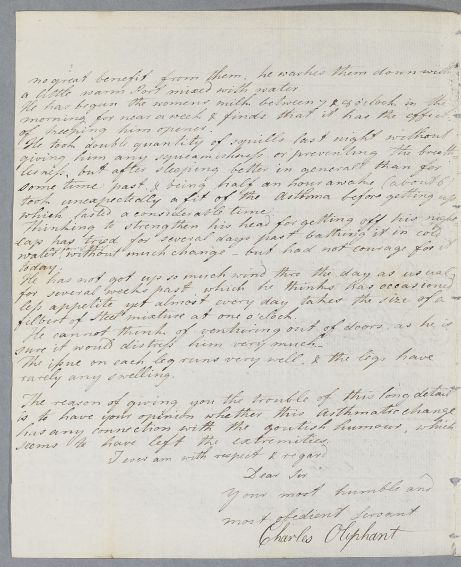 no great benefit from them. he washes them down with
a little warm Port mixed with water
He has begun the womens milk between 7 & 8 o'clock in the
morning for near a week & finds that it has the effect
of keeping him opener.
He took double quantity of squills last night without
giving him any squeamishness or preventing the breath-
lessness, but after sleeping better in general than for
some time past & being half an hour awake (about 6
took unexpectedly a fit of the Asthma before getting up
which lasted a considerable time.
Thinking to strengthen his head for getting off his night
cap has tried for several days past bathing it in cold
water without much change - but had not courage for it
today.
He has not got up so much wind thro the day as usual
for several weeks past which he thinks has occasioned
less appetite yet almost every day takes the size of a
filbert of Steel mixture at one o'clock.
He cannot think of venturing out of doors, as he is
sure it would distress him very much.
The issue on each leg runs very well, & the legs have
rarely any swelling.
The reason of giving you the trouble of this long detail
is to have your opinion whether this asthmatic change
has any connection with the goutish humour, which
seems to have left the extremities.
I ever am with respect & regard
Dear Sir
Your most humble and
most obedient servant
Charles Oliphant